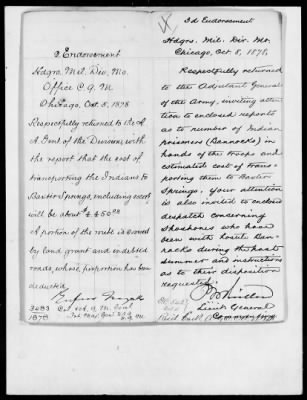 2 Endorsement
Hdqrs. Mil. Div. Mo.
Office C. Q. M.
Chicago, Oct. 5. 1878
Respectfully returned to the A.
A. Genl. of the Division, with
the report that the cost of
transporting the Indians to
Baxter Springs, including escort
will be about
A portion of the route is covered
by land grant and indebted
roads, whose proportion has been
deducted.
Rufus Ingalls
3483
1878
3d Endorsement
Hdqrs. Mil. Div. Mo.
Chicago, Oct. 8, 1878.
Respectfully returned
to the Adjutant General
of the Army, inviting atten-
tion to enclosed reports
as to number of Indian
prisoners (Bannocks) in
hands of the troops and
estimated cost of trans-
porting them to Baxter
Springs. Your attention
is also invited to enclosed
despatch concerning
Shoshones who have
been with hostile Ban-
nocks during the past
summer and instructions
as to their disposition
requested.
P. H. Sheridan
Lieut. General
Commanding